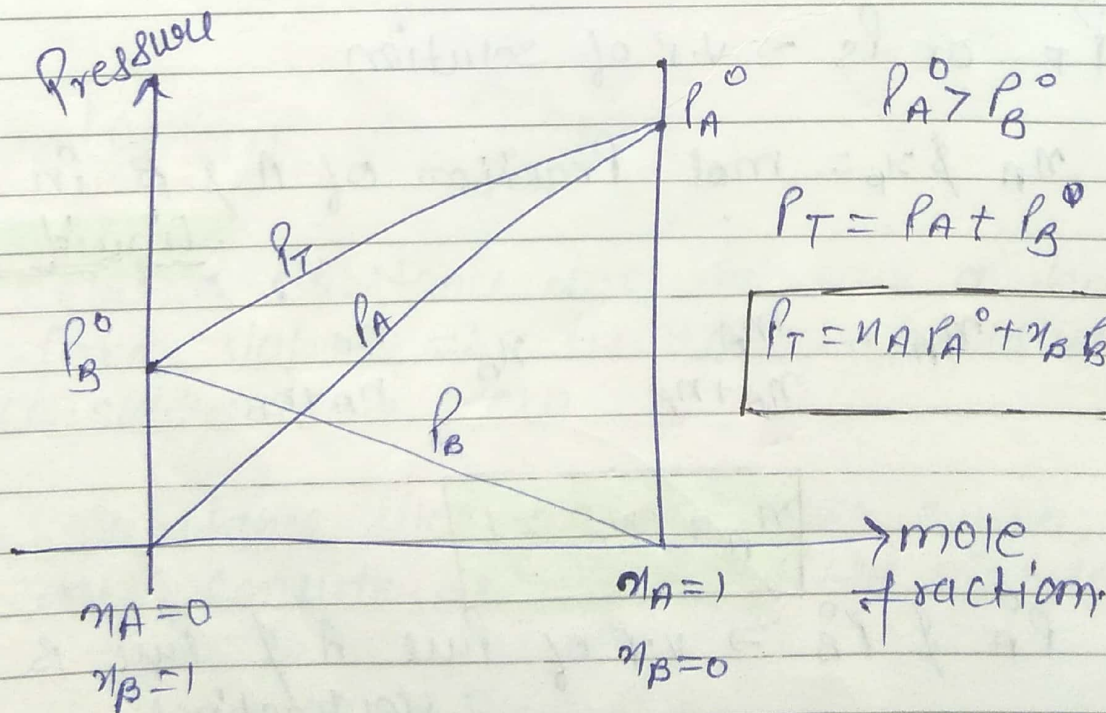 Pressure
P_A^0
P_A^0 > P_B^0
P_T = P_A + P_B^0
P_T
P_A
P_B^0
P_T = x_A P_A^0 + x_B P_B
P_B
mole
fraction.
x_A = 0
x_B = 1
x_A = 1
x_B = 0